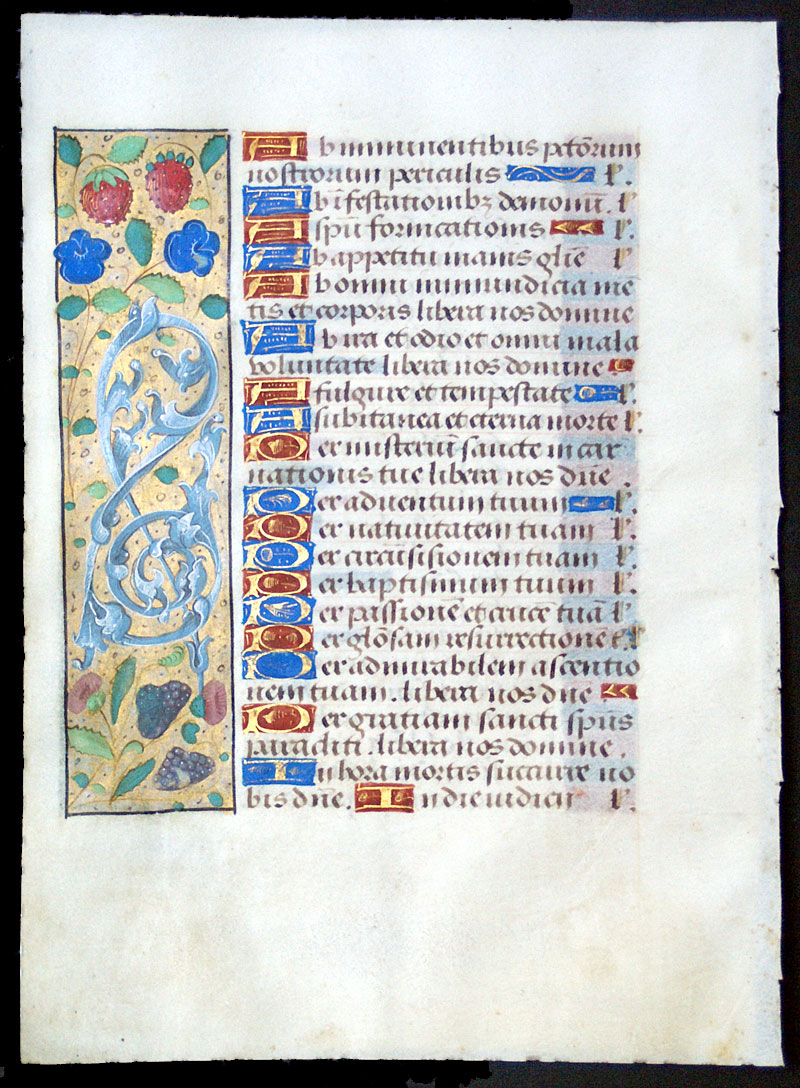 Ab iminentibus pctōrum
nostrorum periculis ł.
Ab īfestationibꝫ demonū. ł
A spū fornicationis ł.
Ab appetitu inanis gliē ł
Ab omni inmundicia mē
tis et corporis libera nos domine
Ab ira et odio et omni mala
voluntate libera nos domine
A fulgure et tempestate ł.
A subitanea et eterna morte ł.
Per misteriū sancte incar
nationis tue libera nos dn̄e .
Per aduentum tuum ł.
Per natiuitatem tuam ł.
Per circūsisionem tuam ł.
Per baptismum tuum ł.
Per passionē et crucē tuā ł
Per glōsam resurrectione t. ł
Per admirabilem ascentio
nem tuam . libera nos dn̄e
Per gratiam sancti sp̄us
paracliti . libera nos domine .
In hora mortis succurre no
bis dn̄e. In die iudicii ł.